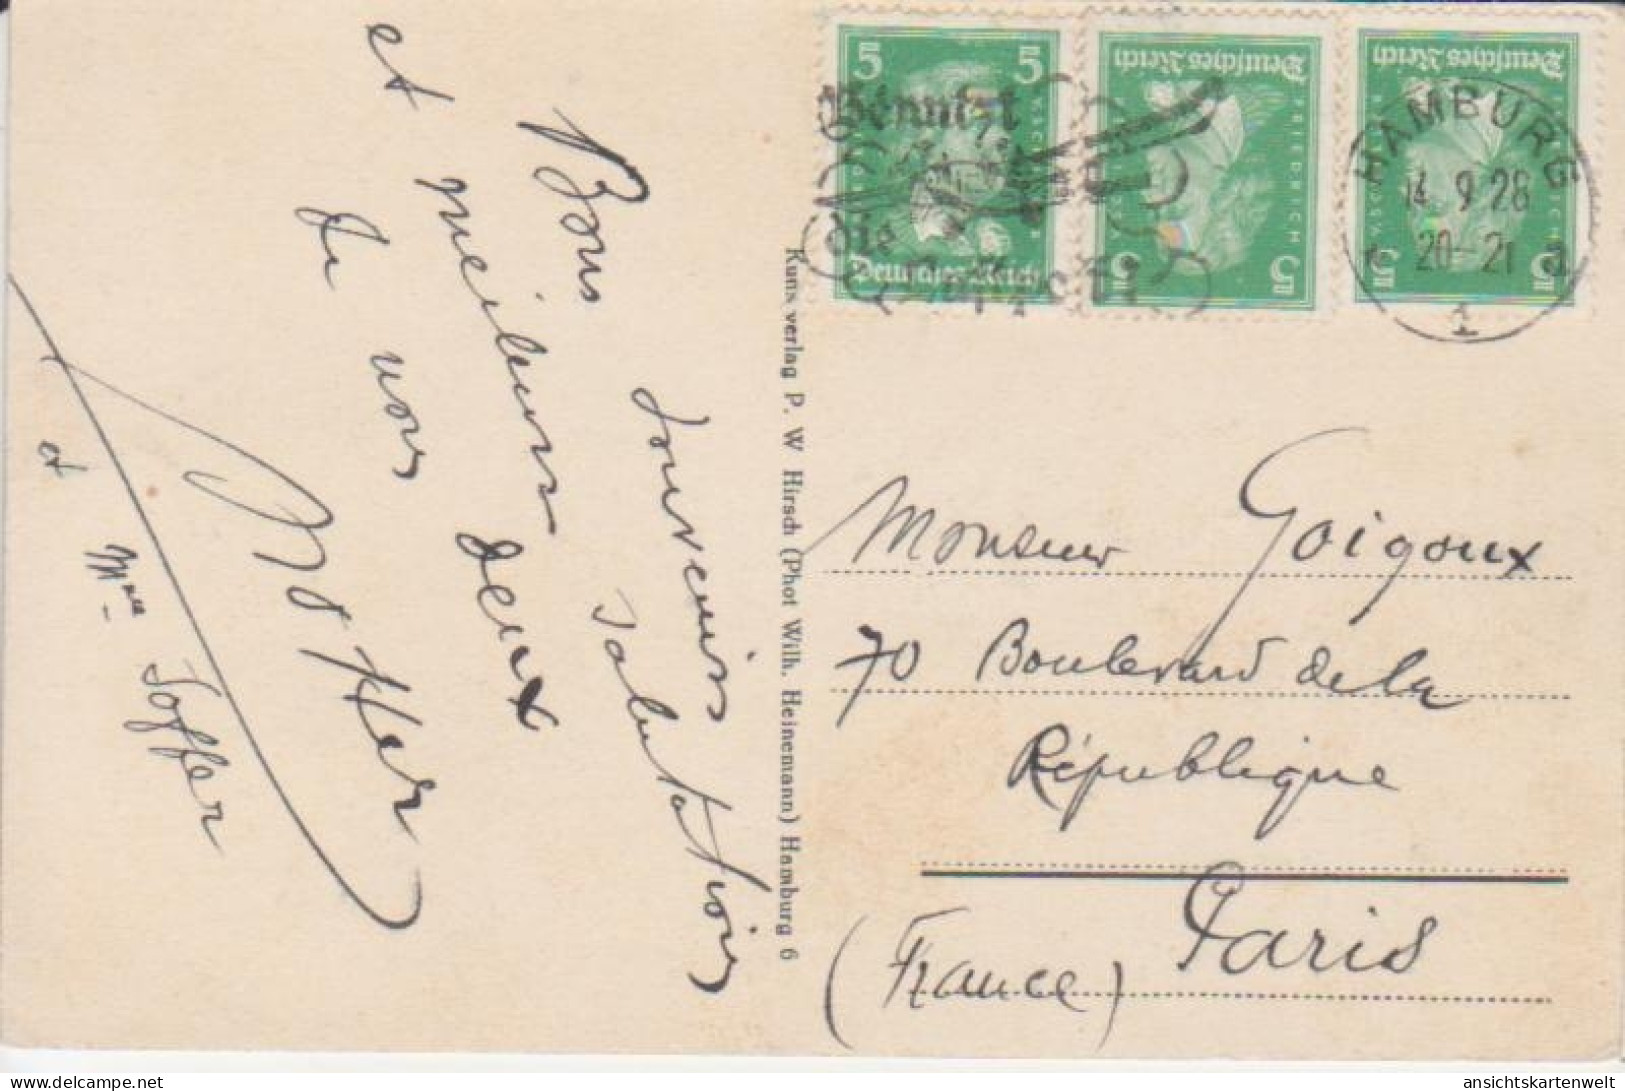 Bons souvenirs
et meilleurs salutations
de nous deux
et Mme Toffer
Kunstverlag P. W Hirsch (Phot Wilh. Heinemann) Hamburg 6
5 5
Deutsches Reich
Benutzt
die
Deutsches Reich
FRIEDRICH V. SCHILLER
5
Deutsches Reich
5
HAMBURG
14.9.28
20-21 a
* 1
Monsieur Goigoux
70 Boulevard de la
République
Paris
(France)
delcampe.net
ansichtskartenwelt